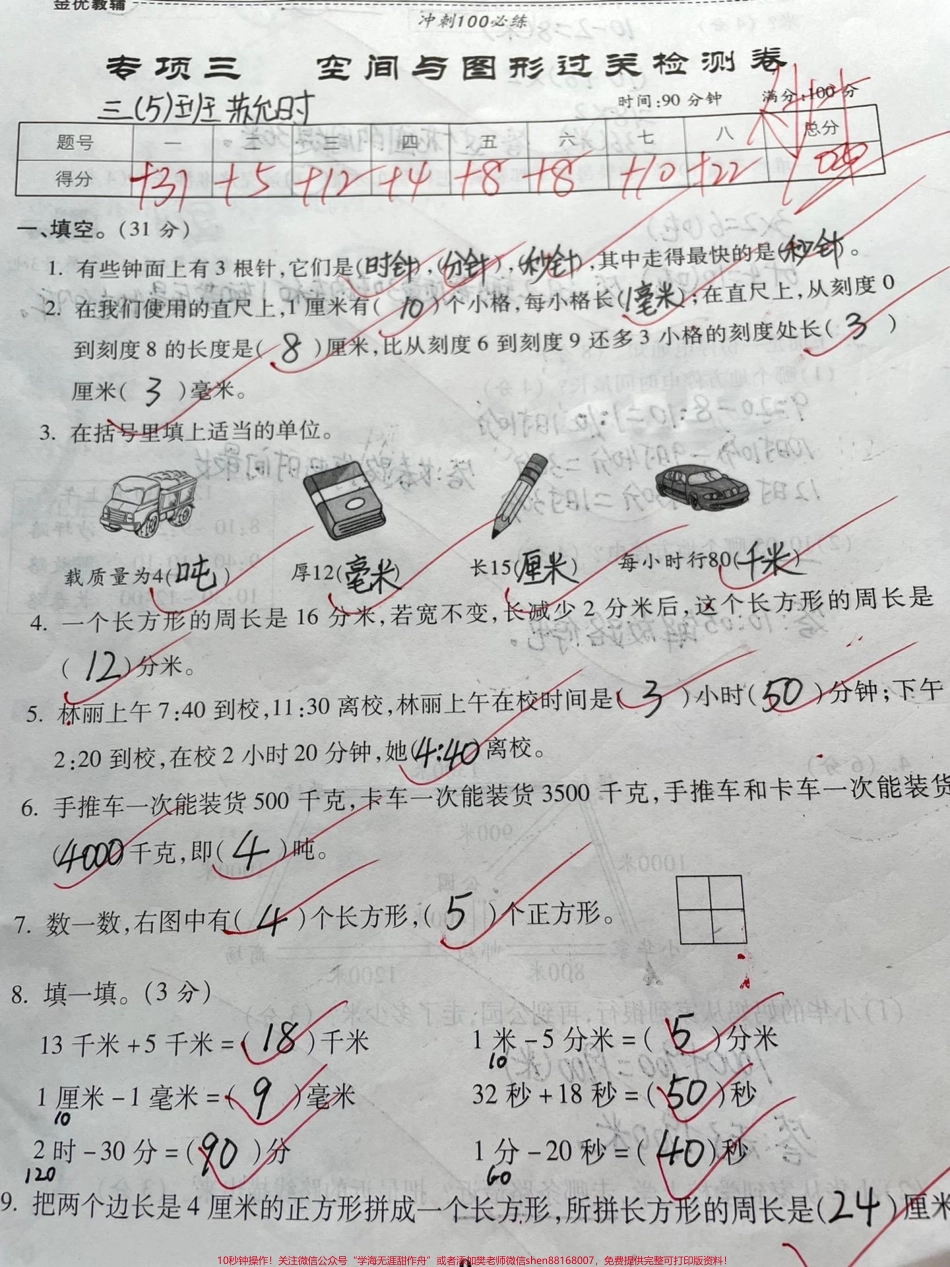 金优教辅
冲刺100必练
专项三 空间与图形过关检测卷
三(5)班 苏允时
时间:90分钟 满分:100分
题号 一 二 三 四 五 六 七 八 总分
得分 +31 +5 +12 +4 +8 +8 +10 +22
一、填空。(31分)
1. 有些钟面上有3根针,它们是(时针),(分针),(秒针),其中走得最快的是(秒针)。
2. 在我们使用的直尺上,1厘米有(10)个小格,每小格长(1毫米);在直尺上,从刻度0
到刻度8的长度是(8)厘米,比从刻度6到刻度9还多3小格的刻度处长(3)
厘米(3)毫米。
3. 在括号里填上适当的单位。
载质量为4(吨) 厚12(毫米) 长15(厘米) 每小时行80(千米)
4. 一个长方形的周长是16分米,若宽不变,长减少2分米后,这个长方形的周长是
(12)分米。
5. 林丽上午7:40到校,11:30离校,林丽上午在校时间是(3)小时(50)分钟;下午
2:20到校,在校2小时20分钟,她(4:40)离校。
6. 手推车一次能装货500千克,卡车一次能装货3500千克,手推车和卡车一次能装货
(4000)千克,即(4)吨。
7. 数一数,右图中有(4)个长方形,(5)个正方形。
8. 填一填。(3分)
13千米+5千米=(18)千米 1米-5分米=(5)分米
10
1厘米-1毫米=(9)毫米 32秒+18秒=(50)秒
10
2时-30分=(90)分 1分-20秒=(40)秒
120 60
9. 把两个边长是4厘米的正方形拼成一个长方形,所拼长方形的周长是(24)厘米
10秒钟操作!关注微信公众号“学海无涯甜作舟”或者添加樊老师微信shen88168007,免费提供完整可打印版资料!